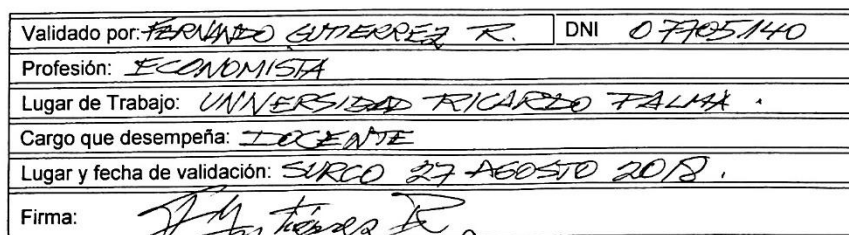 Validado por: FERNANDO GUTIERREZ R. DNI 07705140
Profesión: ECONOMISTA
Lugar de Trabajo: UNIVERSIDAD RICARDO PALMA.
Cargo que desempeña: DOCENTE
Lugar y fecha de validación: SURCO 27 AGOSTO 2018.
Firma: